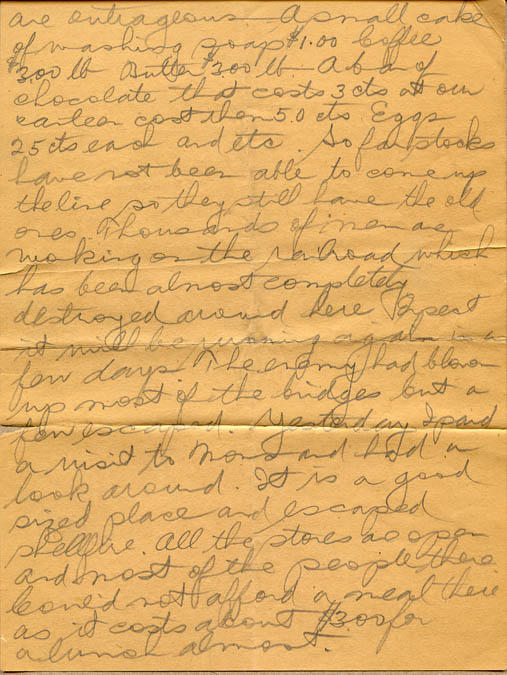 are outrageous. A small cake
of washing soap $1.00 Coffee
$3.00 lb Butter $3.00 lb A bar of
chocolate that costs 3 cts at our
canteen cost them 50 cts Eggs
25 cts each and etc. So far stocks
have not been able to come up
the line so they still have the old
ones. Thousands of men are
working on the railroad which
has been almost completely
destroyed around here Expect
it will be running again in a
few days The enemy had blown
up most of the bridges but a
few escaped. Yesterday I paid
a visit to Mons and had a
look around. It is a good
sized place and escaped
shellfire. All the stores are open
and most of the people there
could not afford a meal there
as it costs about $3.00 for
a lunch almost.